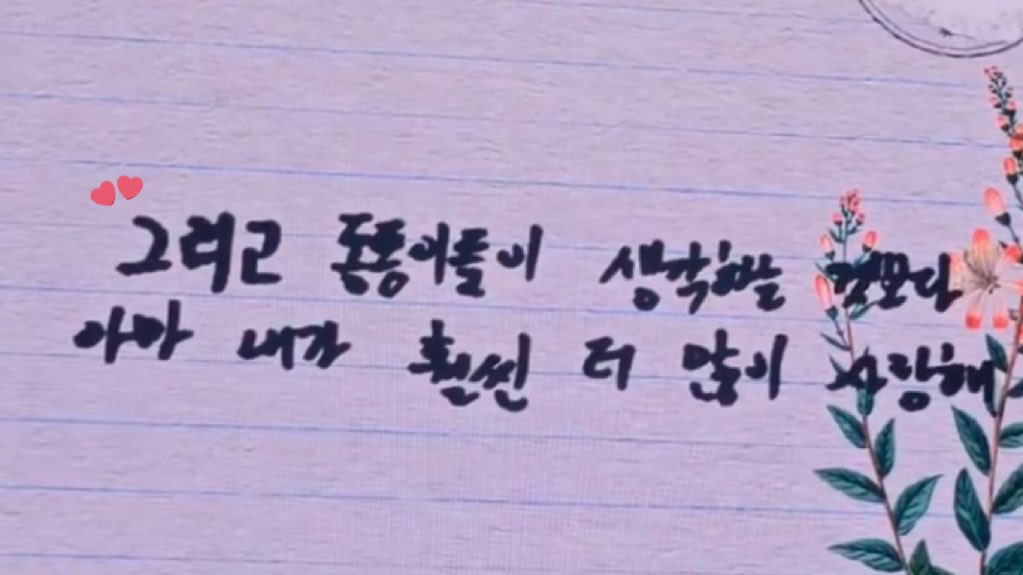 그리고 돈똥이들이 생각하는 것보다
아마 내가 훨씬 더 많이 사랑해